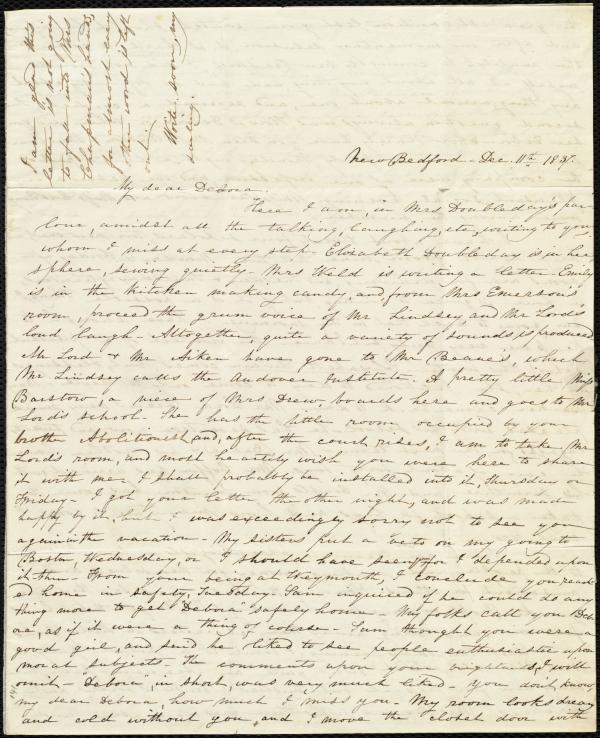 I am glad this
letter is not going
to fall into Mrs
Chapman's hands,
for almost every
other word is left
out.
Write soon, my
darling.
New Bedford - Dec. 11th 1837.
My dear Debora.
Here I am, in Mrs Doubleday's par-
lour, amidst all the talking, laughing, etc, writing to you,
whom I miss at every step. Elizabeth Doubleday is in her
sphere, sewing quietly. Mrs Weld is writing a letter. Emily
is in the kitchen making candy, and from Mrs Emerson's
room, proceed the grum voice of Mr Lindsey and Mr Lord's
loud laugh. Altogether, quite a variety of sounds is produced
Mr Lord & Mr Aiken have gone to Mr Beane's, which
Mr Lindsey calls the Andover Institute. A pretty little Miss
Barstow, a niece of Mrs Drew, boards here and goes to Mr
Lord's school. She has the little room occupied by your
brother Abolitionist, and, after the court rises, I am to take Mr
Lord's room, and most heartily wish you were here to share
it with me. I shall probably be installed into it, Thursday or
Friday - I got your letter the other night, and was made
happy by it, but I was exceedingly sorry not to see you
again in the vacation - My sisters put a veto on my going to
Boston, Wednesday, or I should have seen you for I depended upon
it then - From your being at Weymouth, I conclude you reach-
ed home in safety, Tuesday. Sam inquired if he could do any
thing more to get "Debora" safely home - My folks call you Deb-
ora, as if it were a thing of course. Sam thought you were a
good girl, and said he liked to see people enthusiastic upon
moral subjects - The comments upon your I will
omit - "Debora", in short, was very much liked - You don't know,
my dear Debora, how much I miss you. My room looks dreary
and cold without you, and I move the closet door with